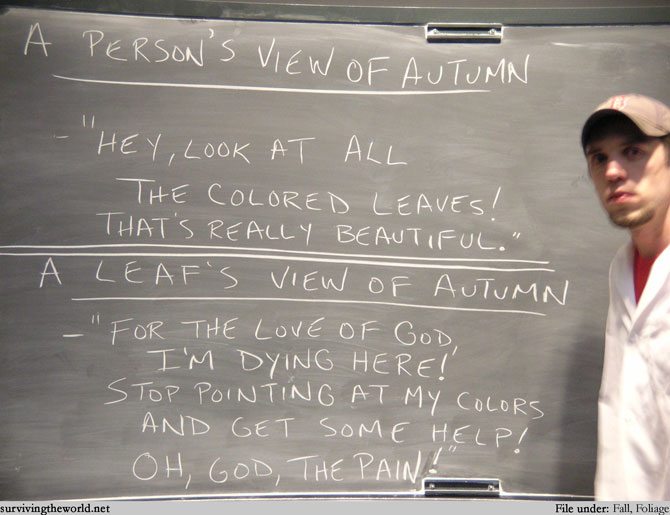 A PERSON'S VIEW OF AUTUMN
- "HEY, LOOK AT ALL
THE COLORED LEAVES!
THAT'S REALLY BEAUTIFUL."
A LEAF'S VIEW OF AUTUMN
- "FOR THE LOVE OF GOD,
I'M DYING HERE!
STOP POINTING AT MY COLORS
AND GET SOME HELP!
OH, GOD, THE PAIN!"
survivingtheworld.net File under: Fall, Foliage